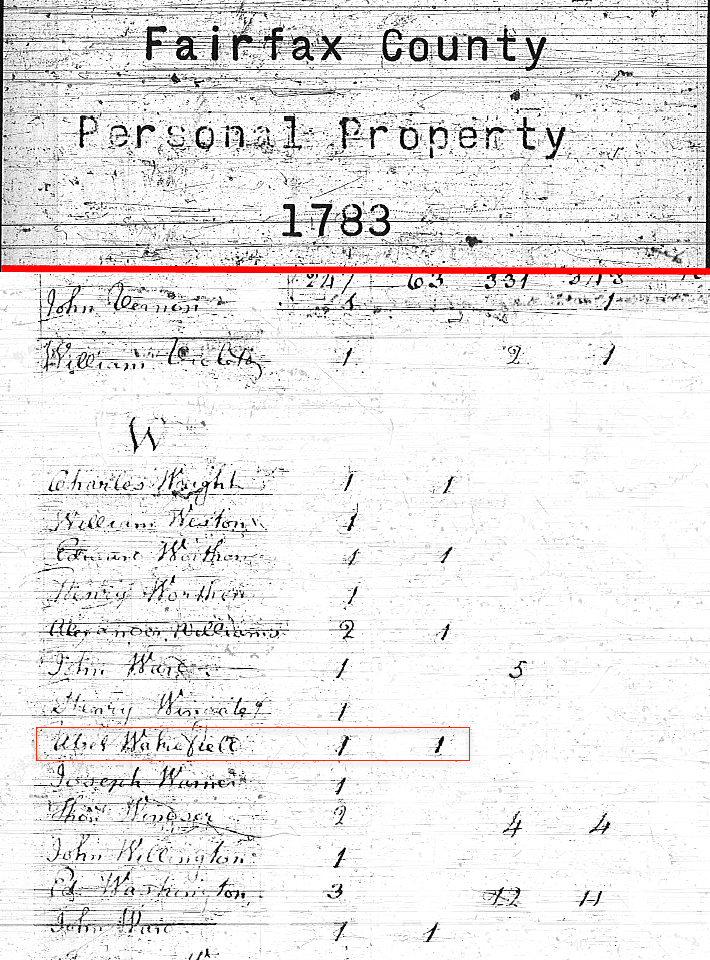 Fairfax County
Personal Property
1783
247 63 331
John Vernon 1 1
William 1 2 1
W
Charles Wright 1 1
William Weston 1
Edward Worthon 1 1
Henry Worthen 1
Alexander Williams 2 1
John Ward 1 5
Henry 1
Abel Wakefield 1 1
Joseph Warner 1
Thos Windsor 2 4 4
John Willington 1
Ed. Washington 3 12 11
John Ward 1 1